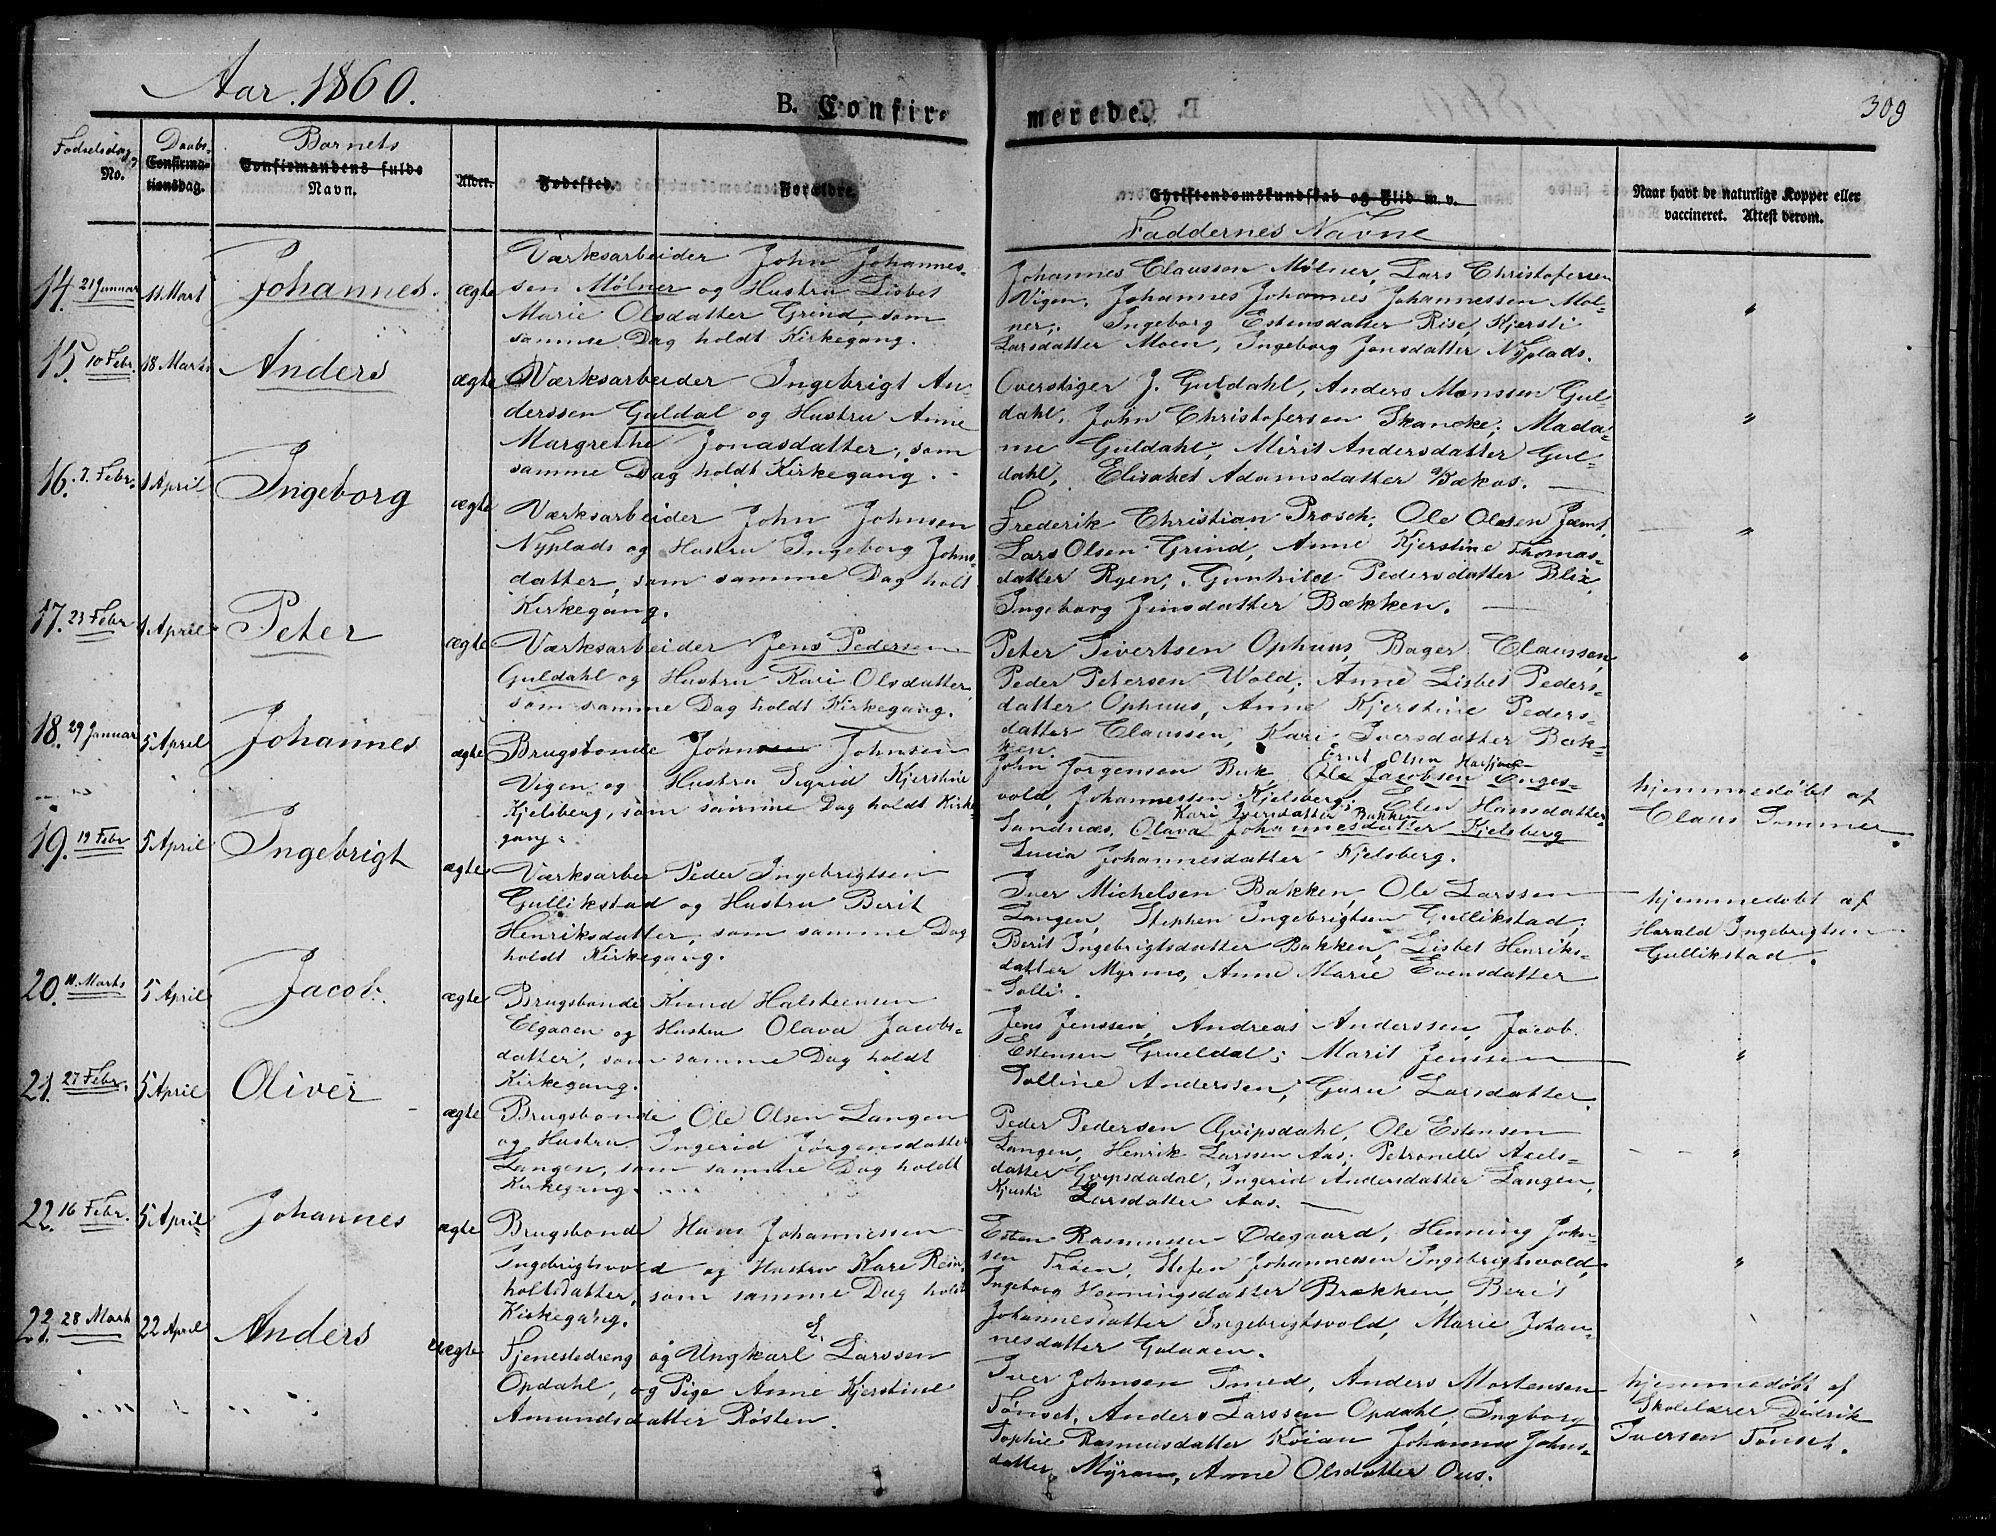 Aar. 1860.
B. Confir-
merede.
309
Fødselsdag,
No.
Daabs-
Confirma-
tionsdag.
Barnets
Confirmandens fulde
Navn.
Alder.
Fødested.
Forældre.
Christendomskundskab og Flid m. v.
Faddernes Navne
Naar havt de naturlige Kopper eller
vaccineret. Attest derom.
14. 21 Januar
11 Mart
Johannes.
ægte
Værksarbeider John Johannes-
sen Mølner og Hustru Lisbet
Marie Olsdatter Grind, som
samme Dag holdt Kirkegang.
Johannes Clausson Mølner, Lars Christofersen
Vigen, Johannes Johannes Johannessen Møl-
ner, Ingeborg Estensdatter Rise, Kjersti
Larsdatter Moen, Ingeborg Jonsdatter Nyplads.
"
15. 10 Febr.
18 Marts
Anders
ægte
Værksarbeider Ingebrigt An-
derssen Guldal og Hustru Anne
Margrethe Jonasdatter, som
samme Dag holdt Kirkegang.
Overstiger J. Guldahl, Anders Monssen Gul-
dahl, John Christofersen Skancke, Mada-
me Guldahl, Mirit Andersdatter Gul-
dahl, Elisabet Adamsdatter Bækos.
"
16. 7. Febr.
1 April
Ingeborg
ægte
Værksarbeider John Johnsen
Nyplads og Hustru Ingeborg Johns-
datter, som samme Dag holdt
Kirkegang.
Frederik Christian Prosch, Ole Olesen Jamt,
Lars Olsen Grind, Anne Kjerstine Thomas-
datter Ryen, Gunhild Pedersdatter Blix,
Ingeborg Jensdatter Bækken.
"
17. 23 Febr
1 April
Peter
ægte
Værksarbeider Jens Pedersen
Guldahl og Hustru Kari Olsdatter,
som samme Dag holdt Kirkegang.
Peter Sivertsen Ophuus, Bager Claussen,
Peder Petersen Wold, Anne Lisbet Peders-
datter Ophuus, Anne Kjerstine Peders-
datter Claussen, Kari Iversdatter Bæk-
ken.
"
18. 29 Januar
5 April
Johannes
ægte
Brugsbonde John Johnsen
Vigen og Hustru Sigrid Kjerstine
Kjelsberg, som samme Dag holdt Kirke-
gang.
Ernt Olsen
John Jørgensen Buk, Ole Jacobsen Enges-
vold, Johannessen Kjelsberg, Elen Hansdatter
Kari Iversdatter Bakken
Sandnæs, Olava Johannesdatter Kjelsberg
Lucia Johannesdatter Kjelsberg.
hjemmedøbt af
Claus Sommer.
19. 19 Febr
5 April
Ingebrigt
ægte
Værksarber Peder Ingebrigtsen
Gullikstad og Hustru Berit
Henriksdatter, som samme Dag
holdt Kirkegang.
Iver Michelsen Bakken, Ole Larssen
Langen, Stephen Ingebrigtsen Gullikstad;
Berit Ingebrigtsdatter Bakken, Lisbet Henriks-
datter Myrmo, Anne Marie Evensdatter
Tolli.
hjemmedøbt af
Harald Ingebrigtsen
Gullikstad.
20. 11. Marts
5 April
Jacob.
ægte
Brugsbonde Knud Halsteensen
Elgaaen og Hustru Olava Jacobs-
datter, som samme Dag holdt
Kirkegang.
Jens Jenssen, Andreas Anderssen, Jacob
Estensen Grueldal; Marit Jenssen
Tolline Anderssen, Guru Larsdatter.
"
21. 27 Febr.
5 April
Oliver
ægte
Brugsbonde Ole Olsen Langen
og Hustru Ingerid Jørgensdatter
Langen, som samme Dag holdt
Kirkegang.
Peder Pedersen Gripsdahl, Ole Estensen
Langen, Henrik Larssen Aas, Petronelle Axels-
datter Gripsdadal, Ingerid Andersdatter Langen,
Kjersti Larsdatter Aas.
"
22. 16 Febr.
5 April
Johannes
ægte
Brugsbonde Hans Johannessen
Ingebrigtsvold og Hustru Kari Rein-
holtsdatter, som samme Dag holdt
Kirkegang.
Esten Rasmussen Ødegaard, Henning John-
sen Trøen, Stefen Johannessen Ingebrigtsvold,
Ingeborg Henningsdatter Brækken, Berit
Johannesdatter Ingebrigtsvold, Marie Johan-
nesdatter Galaaen.
"
23. 28 Mart
22 April
Anders
uægte
Tjenestedreng og Ungkarl E. Larssen
Opdahl, og Pige Anne Kjerstine
Amundsdatter Røsten.
Iver Johnsen Smed, Anders Mortensen
Tønset, Anders Larssen Opdahl, Ingborg
Sophie Rasmusdatter Køian Johanna Johns-
datter Myran, Anne Olsdatter Ous.
hjemmedøbt af
Skolelærer Didrik
Iversen Tønset.